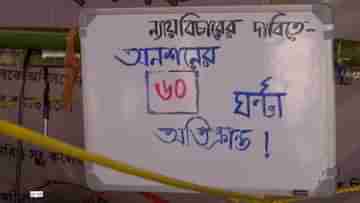 ন্যায়বিচারের দাবিতে-
অনশনের
৬০ ঘণ্টা
অতিক্রান্ত !